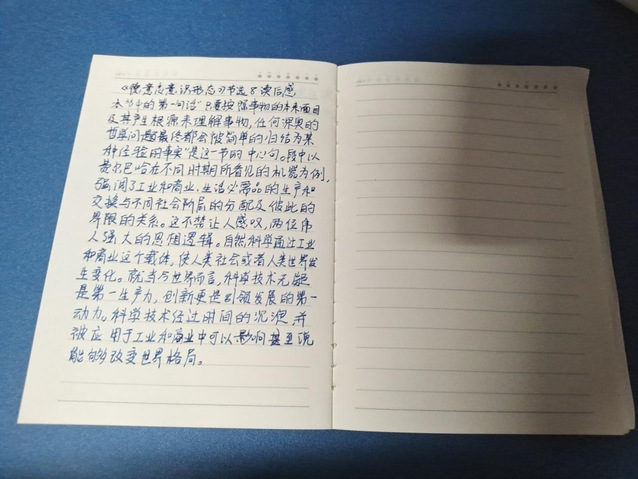 《德意志意识形态》节选8读后感
本节中的第一句话“只要按照事物的本来面目
及其产生根源来理解事物,任何深奥的
哲学问题最终都会被简单的归结为某
种经验的事实”是这一节的中心句。段中以
费尔巴哈在不同时期所看见的机器为例,
强调了工业和商业、生活必需品的生产和
交换与不同社会阶层的分配及彼此的
界限的关系。这不禁让人感叹,两位伟
人强大的思想逻辑。自然科学通过工业
和商业这个载体,使人类社会或者人类世界发
生变化。就当今世界而言,科学技术无疑
是第一生产力,创新更是引领发展的第一
动力。科学技术经过时间的沉淀,并
被应用于工业和商业中可以影响甚至说
能够改变世界格局。